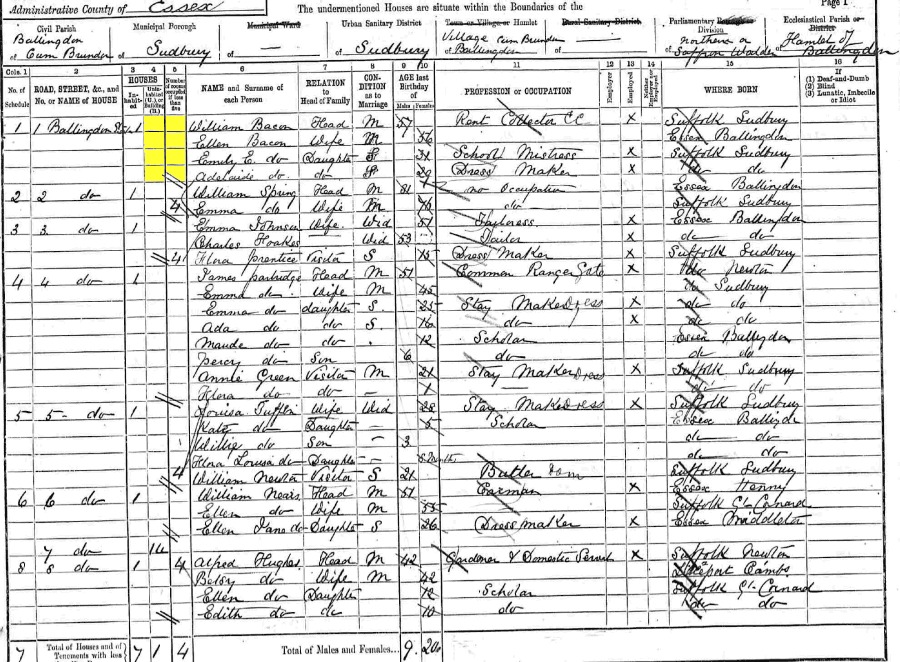 Administrative County of Essex The undermentioned Houses are situate within the Boundaries of the Page 1
Civil Parish Municipal Borough Municipal Ward Urban Sanitary District Town or Village or Hamlet Rural Sanitary District Parliamentary Borough or Division Ecclesiastical Parish or District
of Ballingdon Cum Brundon of Sudbury of — of Sudbury of Village cum Brundon Ballingdon of — of Northern or Saffron Walden of Hamlet of Ballingdon
Cols. 1 2 3 4 5 6 7 8 9 10 11 12 13 14 15 16
No. of Schedule ROAD, STREET, &c., and No. or NAME of HOUSE HOUSES Inhabited Uninhabited (U.) or Building (B.) Number of rooms occupied if less than five NAME and Surname of each Person RELATION to Head of Family CONDITION as to Marriage AGE last Birthday of Males Females PROFESSION or OCCUPATION Employer Employed Neither Employer nor Employed WHERE BORN If (1) Deaf-and-Dumb (2) Blind (3) Lunatic, Imbecile or Idiot
1 1 Ballingdon St 1 William Bacon Head M 57 Rent Collector CC X Suffolk Sudbury
Ellen Bacon Wife M 56 Essex Ballingdon
Emily E. do Daughter S 31 School Mistress X Suffolk Sudbury
Adelaide do do S 29 Dress Maker X do do
2 2 do 1 4 William Spring Head M 81 no Occupation Essex Ballingdon
Emma do Wife M do Suffolk Sudbury
3 3 do 1 Emma Johnson Wife Wid 51 Tailoress X Essex Ballingdon
Charles Hoakes Wid 53 Tailor X do do
4 Flora Prentice Visitor S 15 Dress Maker X Suffolk Sudbury
4 4 do 1 James Partridge Head M 51 Common Ranger X do Newton
Emma do Wife M 45 do Sudbury
Emma do daughter S. 25 Stay Makeress X do do
Ada do do S. 16 do X do do
Maude do do 12 Scholar Essex Ballingdon
Percy do Son 6 do do do
Annie Green Visitor M 21 Stay Makeress X Suffolk Sudbury
Flora do do — 1 — do do
5 5 do 1 Louisa Tuffin Wife Wid 28 Stay Makeress X Suffolk Sudbury
Kate do Daughter — 5 Scholar Essex Ballingdon
Willie do Son — 3 do do
Flora Louisa do Daughter — 8 Months do do
4 William Newton Visitor S 21 Butler Dom Suffolk Sudbury
6 6 do 1 William Mears Head M 51 Carman X Essex Henny
Ellen do Wife M 55 Suffolk Gt Cornard
Ellen Jane do Daughter S 26 Dress maker X Essex Middleton
7 do 1u
8 8 do 1 4 Alfred Hughes Head M 42 Gardener & Domestic Servant X Suffolk Newton
Betsy do Wife M 42 Cambs
Ellen do Daughter 12 Scholar Suffolk Gt Cornard
Edith do do 10 do do do
7 Total of Houses and of Tenements with less 7 1 4 Total of Males and Females... 9 20